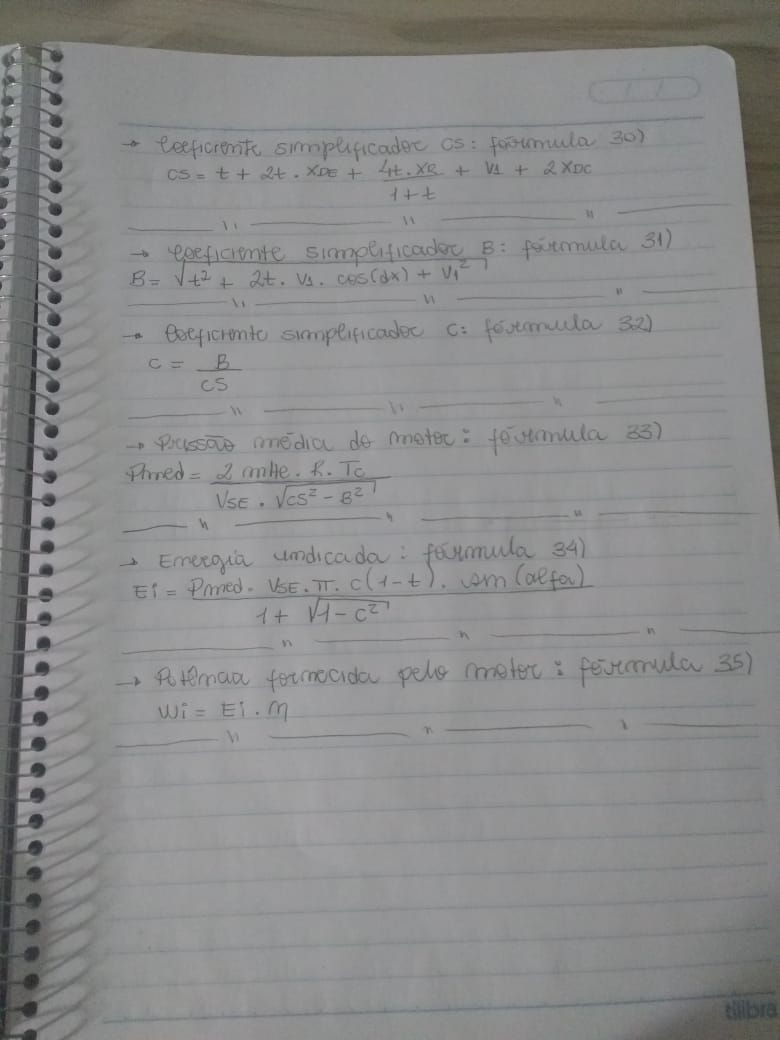 → Coeficiente simplificador CS: fórmula 30)
CS = t + 2t . XDE + 4t . XR / 1 + t + V1 + 2 XDC
→ Coeficiente simplificador B: fórmula 31)
B = √t² + 2t . V1 . cos(dx) + V1²
→ Coeficiente simplificador C: fórmula 32)
C = B / CS
→ Pressão média do motor: fórmula 33)
Pmed = 2 mHe . R . Tc / VSE . √CS² - B²
→ Energia indicada: fórmula 34)
Ei = Pmed . VSE . π . C(1 - t) . sen(alfa) / 1 + √1 - C²
→ Potência fornecida pelo motor: fórmula 35)
Wi = Ei . n
tilibra